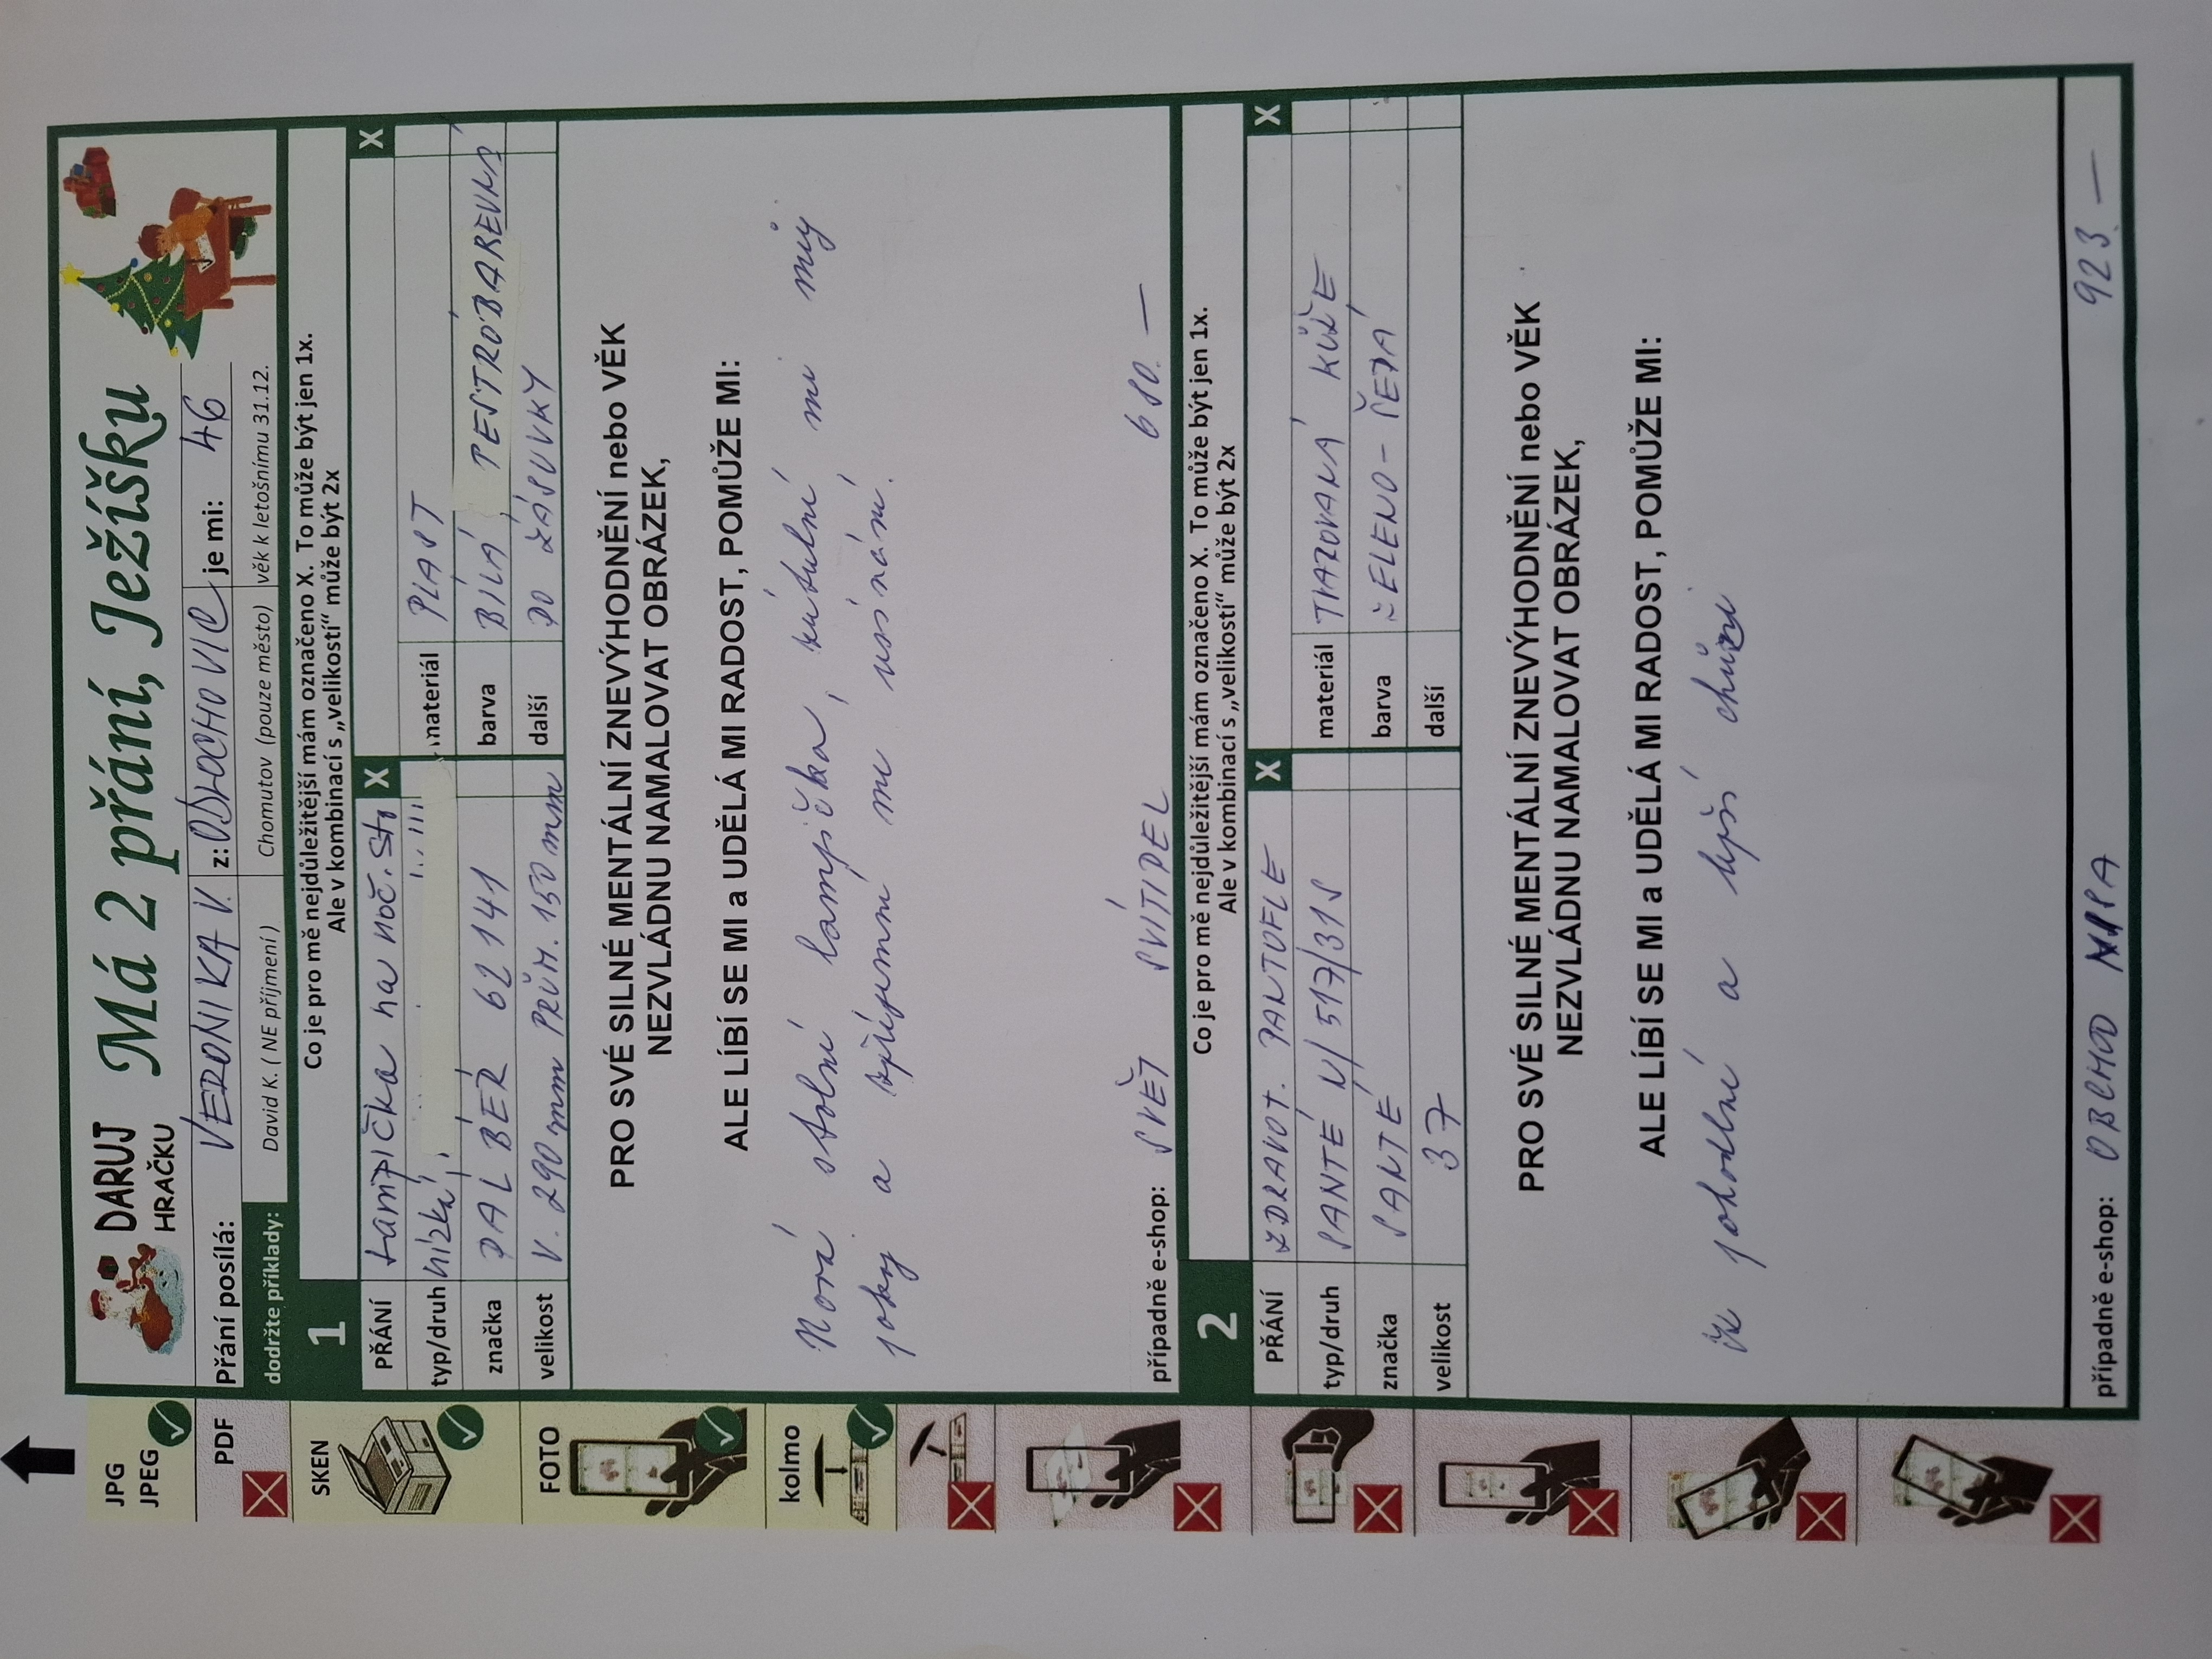 JPG
JPEG
PDF
SKEN
FOTO
kolmo
DARUJ
HRAČKU
Má 2 přání, Ježíšku
Přání posílá: VERONIKA V. z: ODLOCHOVIC je mi: 46
dodržte příklady: David K. ( NE příjmení ) Chomutov (pouze město) věk k letošnímu 31.12.
1 Co je pro mě nejdůležitější mám označeno X. To může být jen 1x.
Ale v kombinací s „velikostí“ může být 2x
PŘÁNÍ Lampička na noč. sto X X
typ/druh nízká materiál PLAST
značka DALBER 62141 barva BÍLÁ, PESTROBAREVNÁ
velikost V. 290 mm PRŮM. 150 mm další DO ZÁSUVKY
PRO SVÉ SILNÉ MENTÁLNÍ ZNEVÝHODNĚNÍ nebo VĚK
NEZVLÁDNU NAMALOVAT OBRÁZEK,
ALE LÍBÍ SE MI a UDĚLÁ MI RADOST, POMŮŽE MI:
Nová stolní lampička, zútulní mi můj
pokoj a zpříjemní mi usínání.
případně e-shop: SVĚT SVÍTIDEL 680.—
2 Co je pro mě nejdůležitější mám označeno X. To může být jen 1x.
Ale v kombinací s „velikostí“ může být 2x
PŘÁNÍ ZDRAVOT. PANTOFLE X X
typ/druh SANTÉ N/517/31S materiál kůže
značka SANTÉ barva ZELENO-ŠEDÁ
velikost 37 další
PRO SVÉ SILNÉ MENTÁLNÍ ZNEVÝHODNĚNÍ nebo VĚK
NEZVLÁDNU NAMALOVAT OBRÁZEK,
ALE LÍBÍ SE MI a UDĚLÁ MI RADOST, POMŮŽE MI:
k pohodlné a lepší chůzi
případně e-shop: OBCHOD 923.—